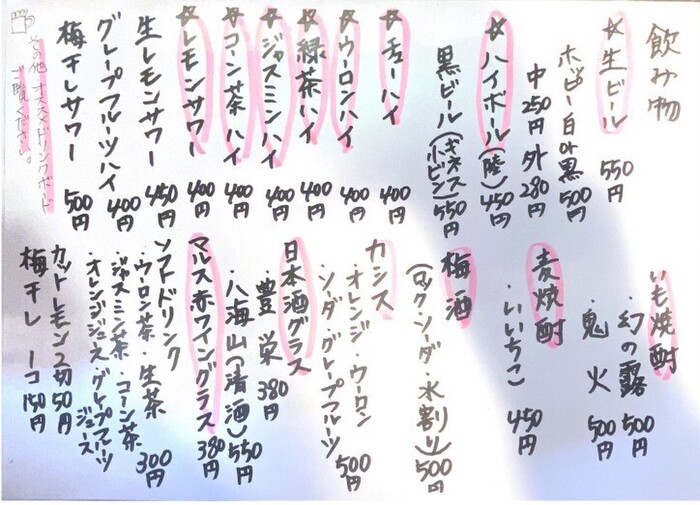 飲み物
☆生ビール 550円
ホッピー白or黒 500円
中250円 外280円
☆ハイボール(陸) 450円
黒ビール(ギネス小ビン) 550円
☆チューハイ 400円
☆ウーロンハイ 400円
☆緑茶ハイ 400円
☆ジャスミンハイ 400円
☆コーン茶ハイ 400円
☆レモンサワー 400円
生レモンサワー 450円
グレープフルーツハイ 400円
梅干しサワー 500円
その他オススメドリンクボード
ご覧ください。
いも焼酎
・幻の露 500円
・鬼火 500円
麦焼酎
・いいちこ 450円
梅酒
(ロック・ソーダ・水割り) 500円
カシス
・オレンジ・ウーロン
・ソーダ・グレープフルーツ 500円
日本酒グラス
・豊栄 380円
・八海山(清酒) 550円
マルス赤ワイングラス 380円
ソフトドリンク
・ウーロン茶・生茶 300円
・ジャスミン茶・コーン茶
・オレンジジュース・グレープフルーツジュース
カットレモン2切 50円
梅干し 1コ 150円